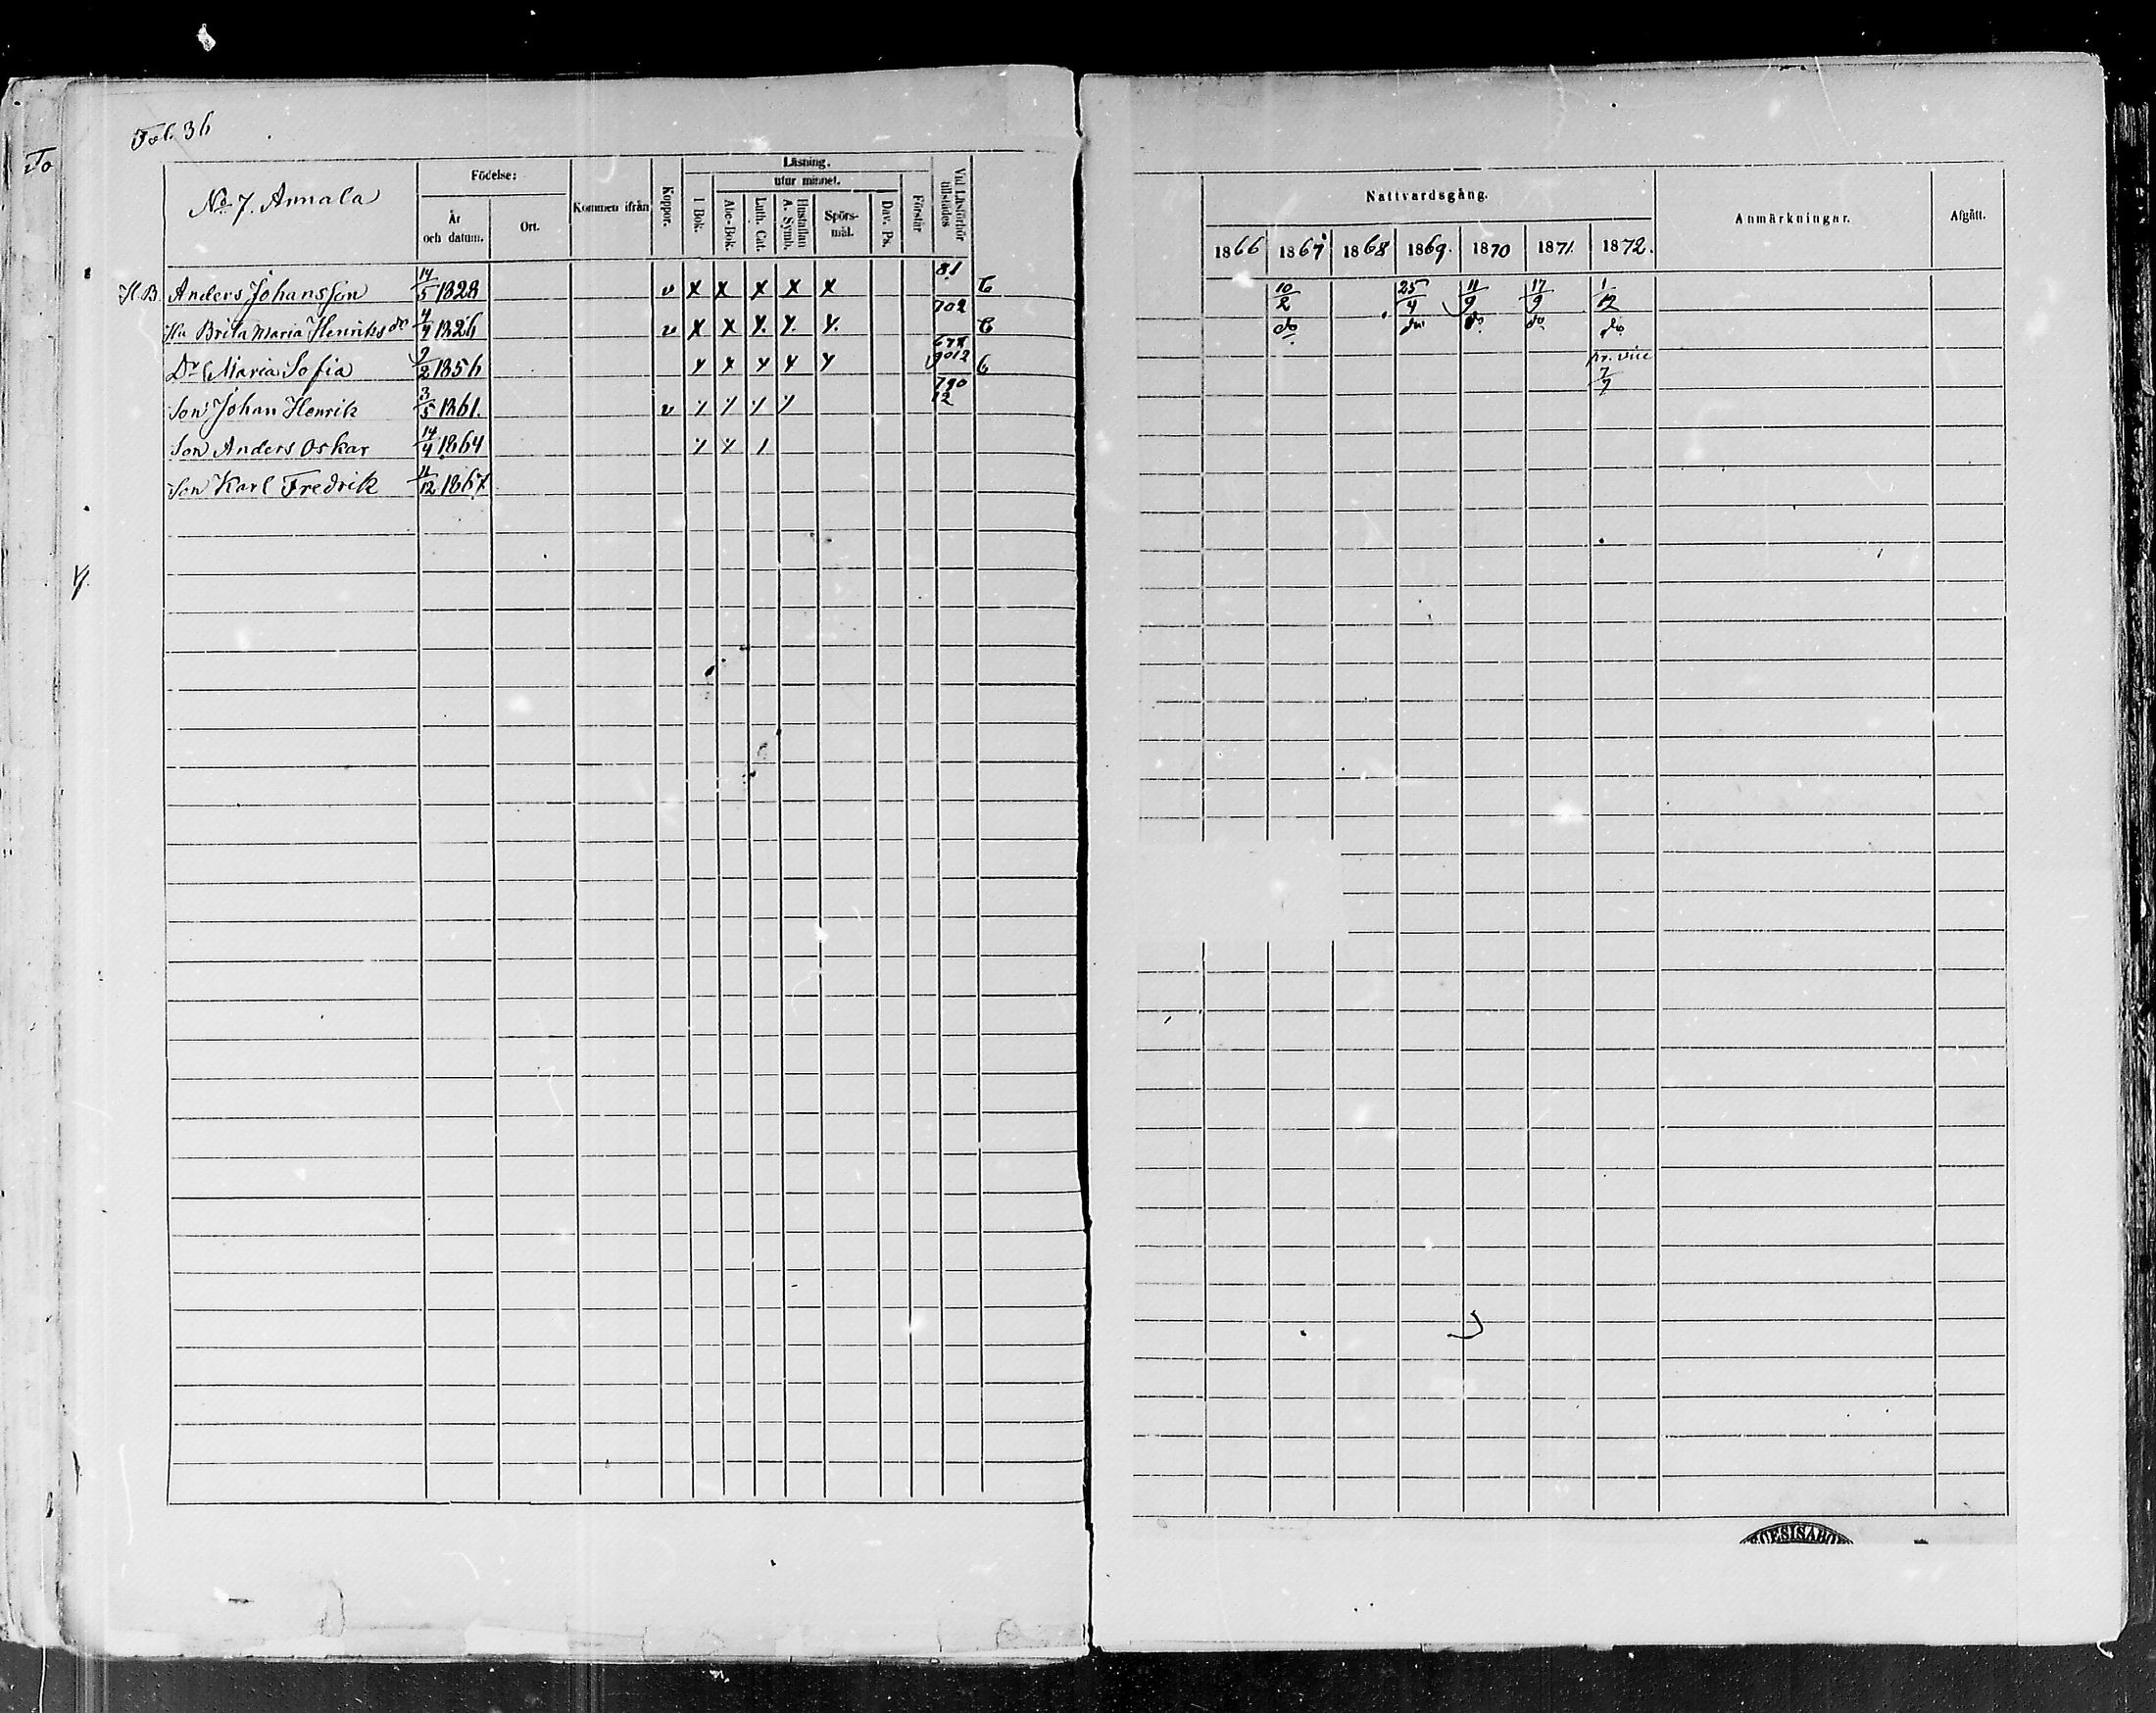 Fol. 36
To
No 7. Annala
Födelse:
År och datum.
Ort.
Kommen ifrån
Koppor.
Läsning.
utur minnet.
I Bok.
Abc-Bok.
Luth. Cat.
Hustaflan A. Symb.
Spörsmål.
Dav. Ps.
Förstår
Vid Läsförhör tillstädes
Nattvardsgång.
1866 1867 1868 1869. 1870 1871. 1872.
Anmärkningar.
Afgått.
H.B. Anders Johansson 14/5 1828 v x x x x x 81 C 10/2 25/4 11/9 17/9 1/12
Hu Brita Maria Henriksdr 4/4 1826 v x x x x x 702 C do do do do do
Dr Maria Sofia 2/2 1856 x x x x x 9012 C 7/7
Son Johan Henrik 3/5 1861. v 790 12
Son Anders Oskar 14/4 1864
Son Karl Fredrik 11/12 1867